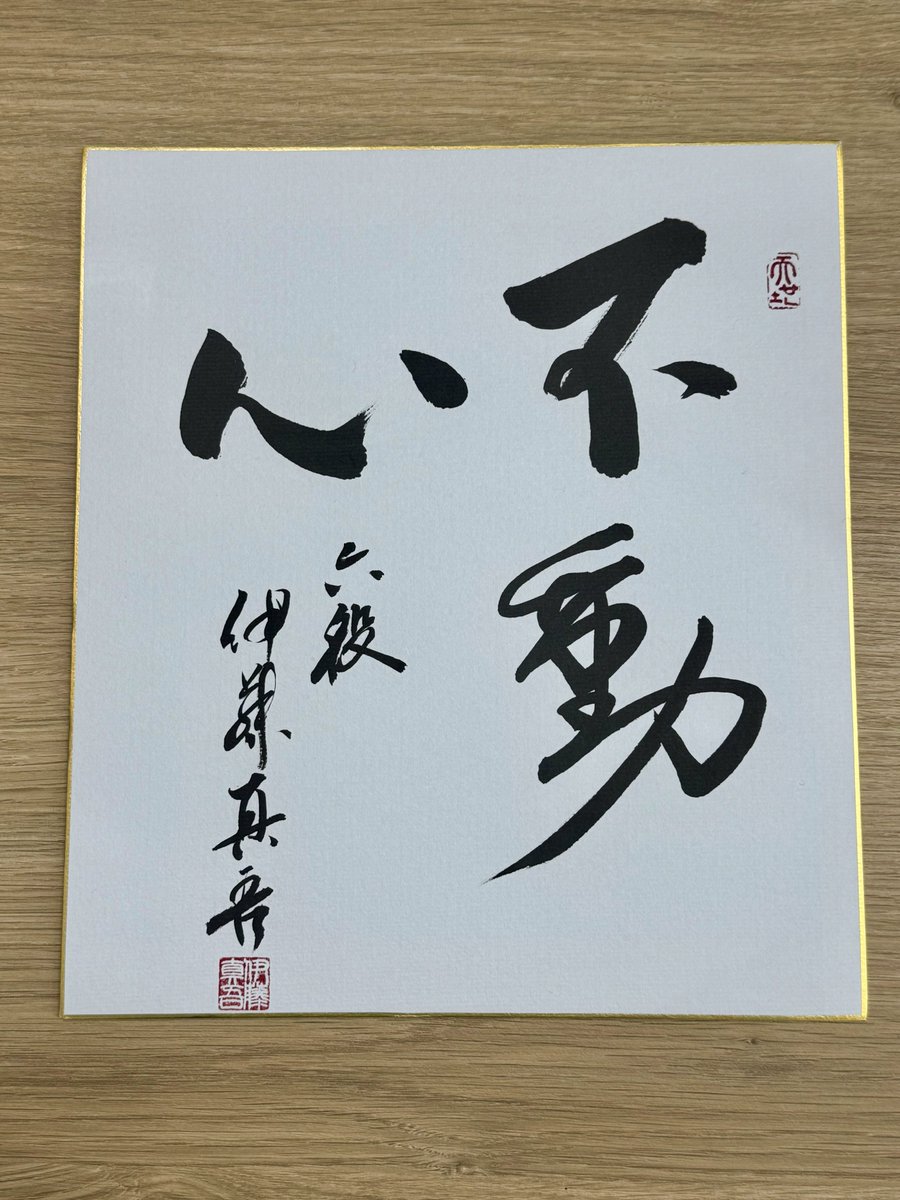 不動
心
六段
伊藤真吾
伊藤
真吾